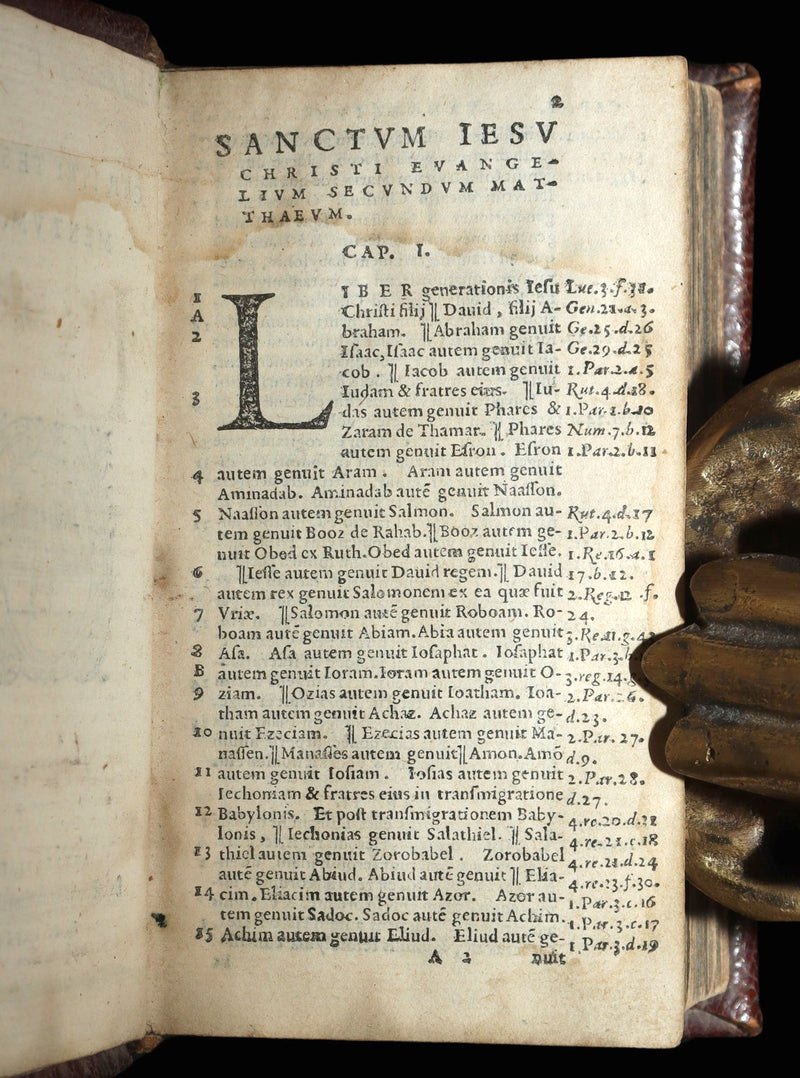 2
SANCTVM IESV
CHRISTI EVANGE-
LIVM SECVNDVM MAT-
THAEVM.
CAP. I.
1 LIBER generationis Iesu Luc.3.f.38.
A Christi filij ][ Dauid, filij A- Gen.21.a.3.
2 braham. ][ Abraham genuit Ge.25.d.26
Isaac, Isaac autem genuit Ia- Ge.29.d.25
cob. ][ Iacob autem genuit 1.Par.2.a.5
3 Iudam & fratres eius. ][ Iu- Rut.4.d.18.
das autem genuit Phares & 1.Par.2.b.10
Zaram de Thamar. ][ Phares Num.7.b.12
autem genuit Esron. Esron 1.Par.2.b.11
4 autem genuit Aram. Aram autem genuit
Aminadab. Aminadab autē genuit Naasson.
5 Naasson autem genuit Salmon. Salmon au- Rut.4.d.17
tem genuit Booz de Rahab. ][ Booz autem ge- 1.Par.2.b.12
nuit Obed ex Ruth. Obed autem genuit Iesse. 1.Re.16.a.1
6 ][ Iesse autem genuit Dauid regem. ][ Dauid 17.b.12.
autem rex genuit Salomonem ex ea quæ fuit 2.Reg.12.f.
7 Vriæ. ][ Salomon autē genuit Roboam. Ro- 24.
boam autē genuit Abiam. Abia autem genuit
8 Asa. Asa autem genuit Iosaphat. Iosaphat 1.Par.3.b
B autem genuit Ioram. Ioram autem genuit O- 3.reg.14.
9 ziam. ][ Ozias autem genuit Ioatham. Ioa- 2.Par.26.
tham autem genuit Achaz. Achaz autem ge- d.23.
10 nuit Ezeciam. ][ Ezecias autem genuit Ma- 2.Par.27.
nassen. ][ Manasses autem genuit ][ Amon. Amō d.9.
11 autem genuit Iosiam. Iosias autem genuit 2.Par.28.
Iechoniam & fratres eius in transmigratione d.27.
12 Babylonis. Et post transmigrationem Baby- 4.re.20.d.21
lonis, ][ Iechonias genuit Salathiel. ][ Sala- 4.re.21.c.18
13 thiel autem genuit Zorobabel. Zorobabel 4.re.21.d.24
autē genuit Abiud. Abiud autē genuit ][ Elia- 4.re.23.f.30.
14 cim. Eliacim autem genuit Azor. Azor au- 1.Par.3.c.16
tem genuit Sadoc. Sadoc autē genuit Achim. 1.Par.3.c.17
15 Achim autem genuit Eliud. Eliud autē ge- 1 Par.3.d.19
A 2 nuit